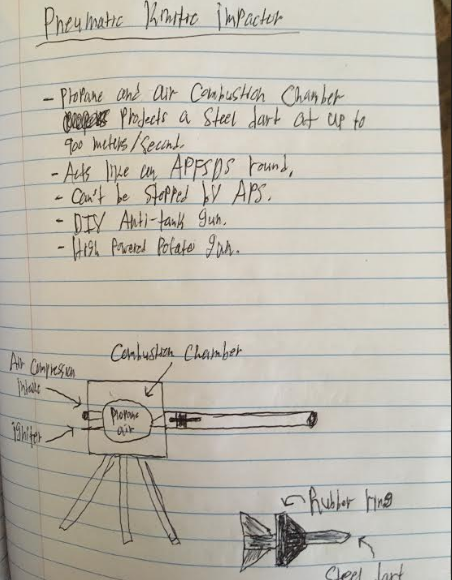 Pneumatic Kinitic impacter
- Propane and air Combustion Chamber
Projects a Steel dart at up to
900 meters/second
- Acts like an APFSDS round,
- Can't be stopped by APS.
- DIY Anti-tank gun.
- High Powered Potatoe gun.
Combustion Chamber
Air Compression
intake
Propane
air
igniter
Rubber ring
Steel dart